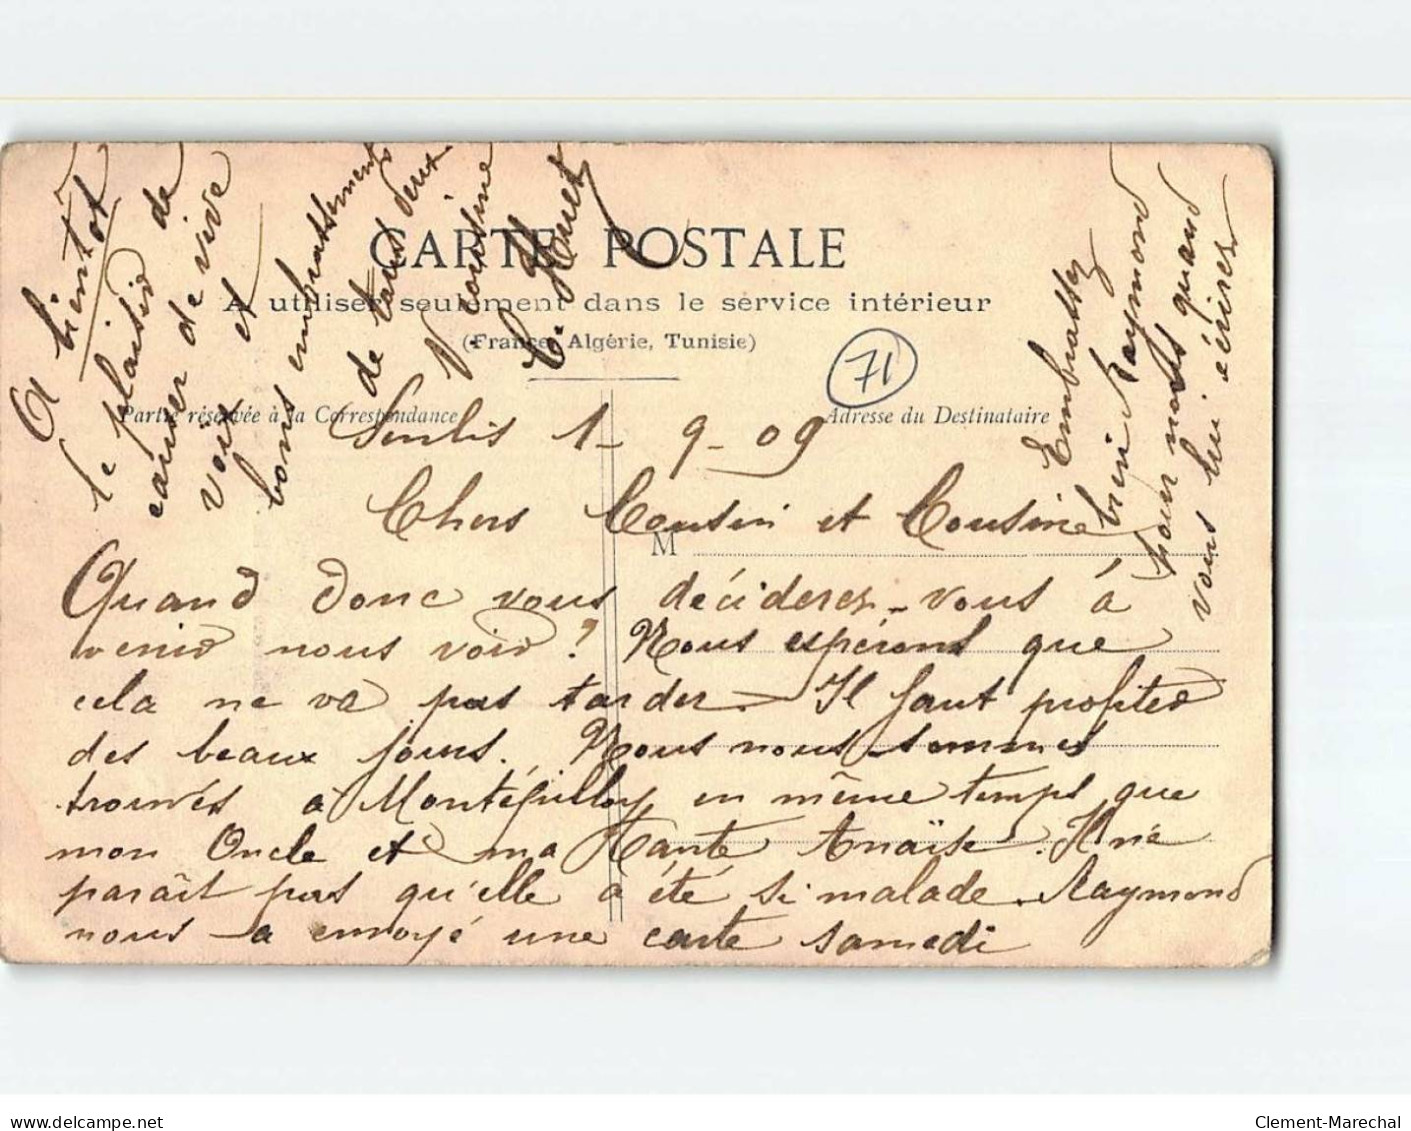 CARTE POSTALE
A utiliser seulement dans le service intérieur
(France, Algérie, Tunisie)
71
Partie réservée à la Correspondance
Adresse du Destinataire
M
Senlis 1-9-09
Chers Cousin et Cousine
Quand donc vous déciderez-vous à
venir nous voir ? Nous espérons que
cela ne va pas tarder. Il faut profiter
des beaux jours. Nous nous sommes
trouvés à Montépilloy en même temps que
mon Oncle et ma Tante Anaïse. Il n'a
paraît pas qu'elle a été si malade. Raymond
nous a envoyé une carte samedi
Embrassez
bien Raymond
pour nous quand
vous lui écrirez
A bientôt
le plaisir de
causer de vive
voix et
bons embrassements
de tous deux
V. cousine
C. Huet
Clement-Marechal
delcampe.net